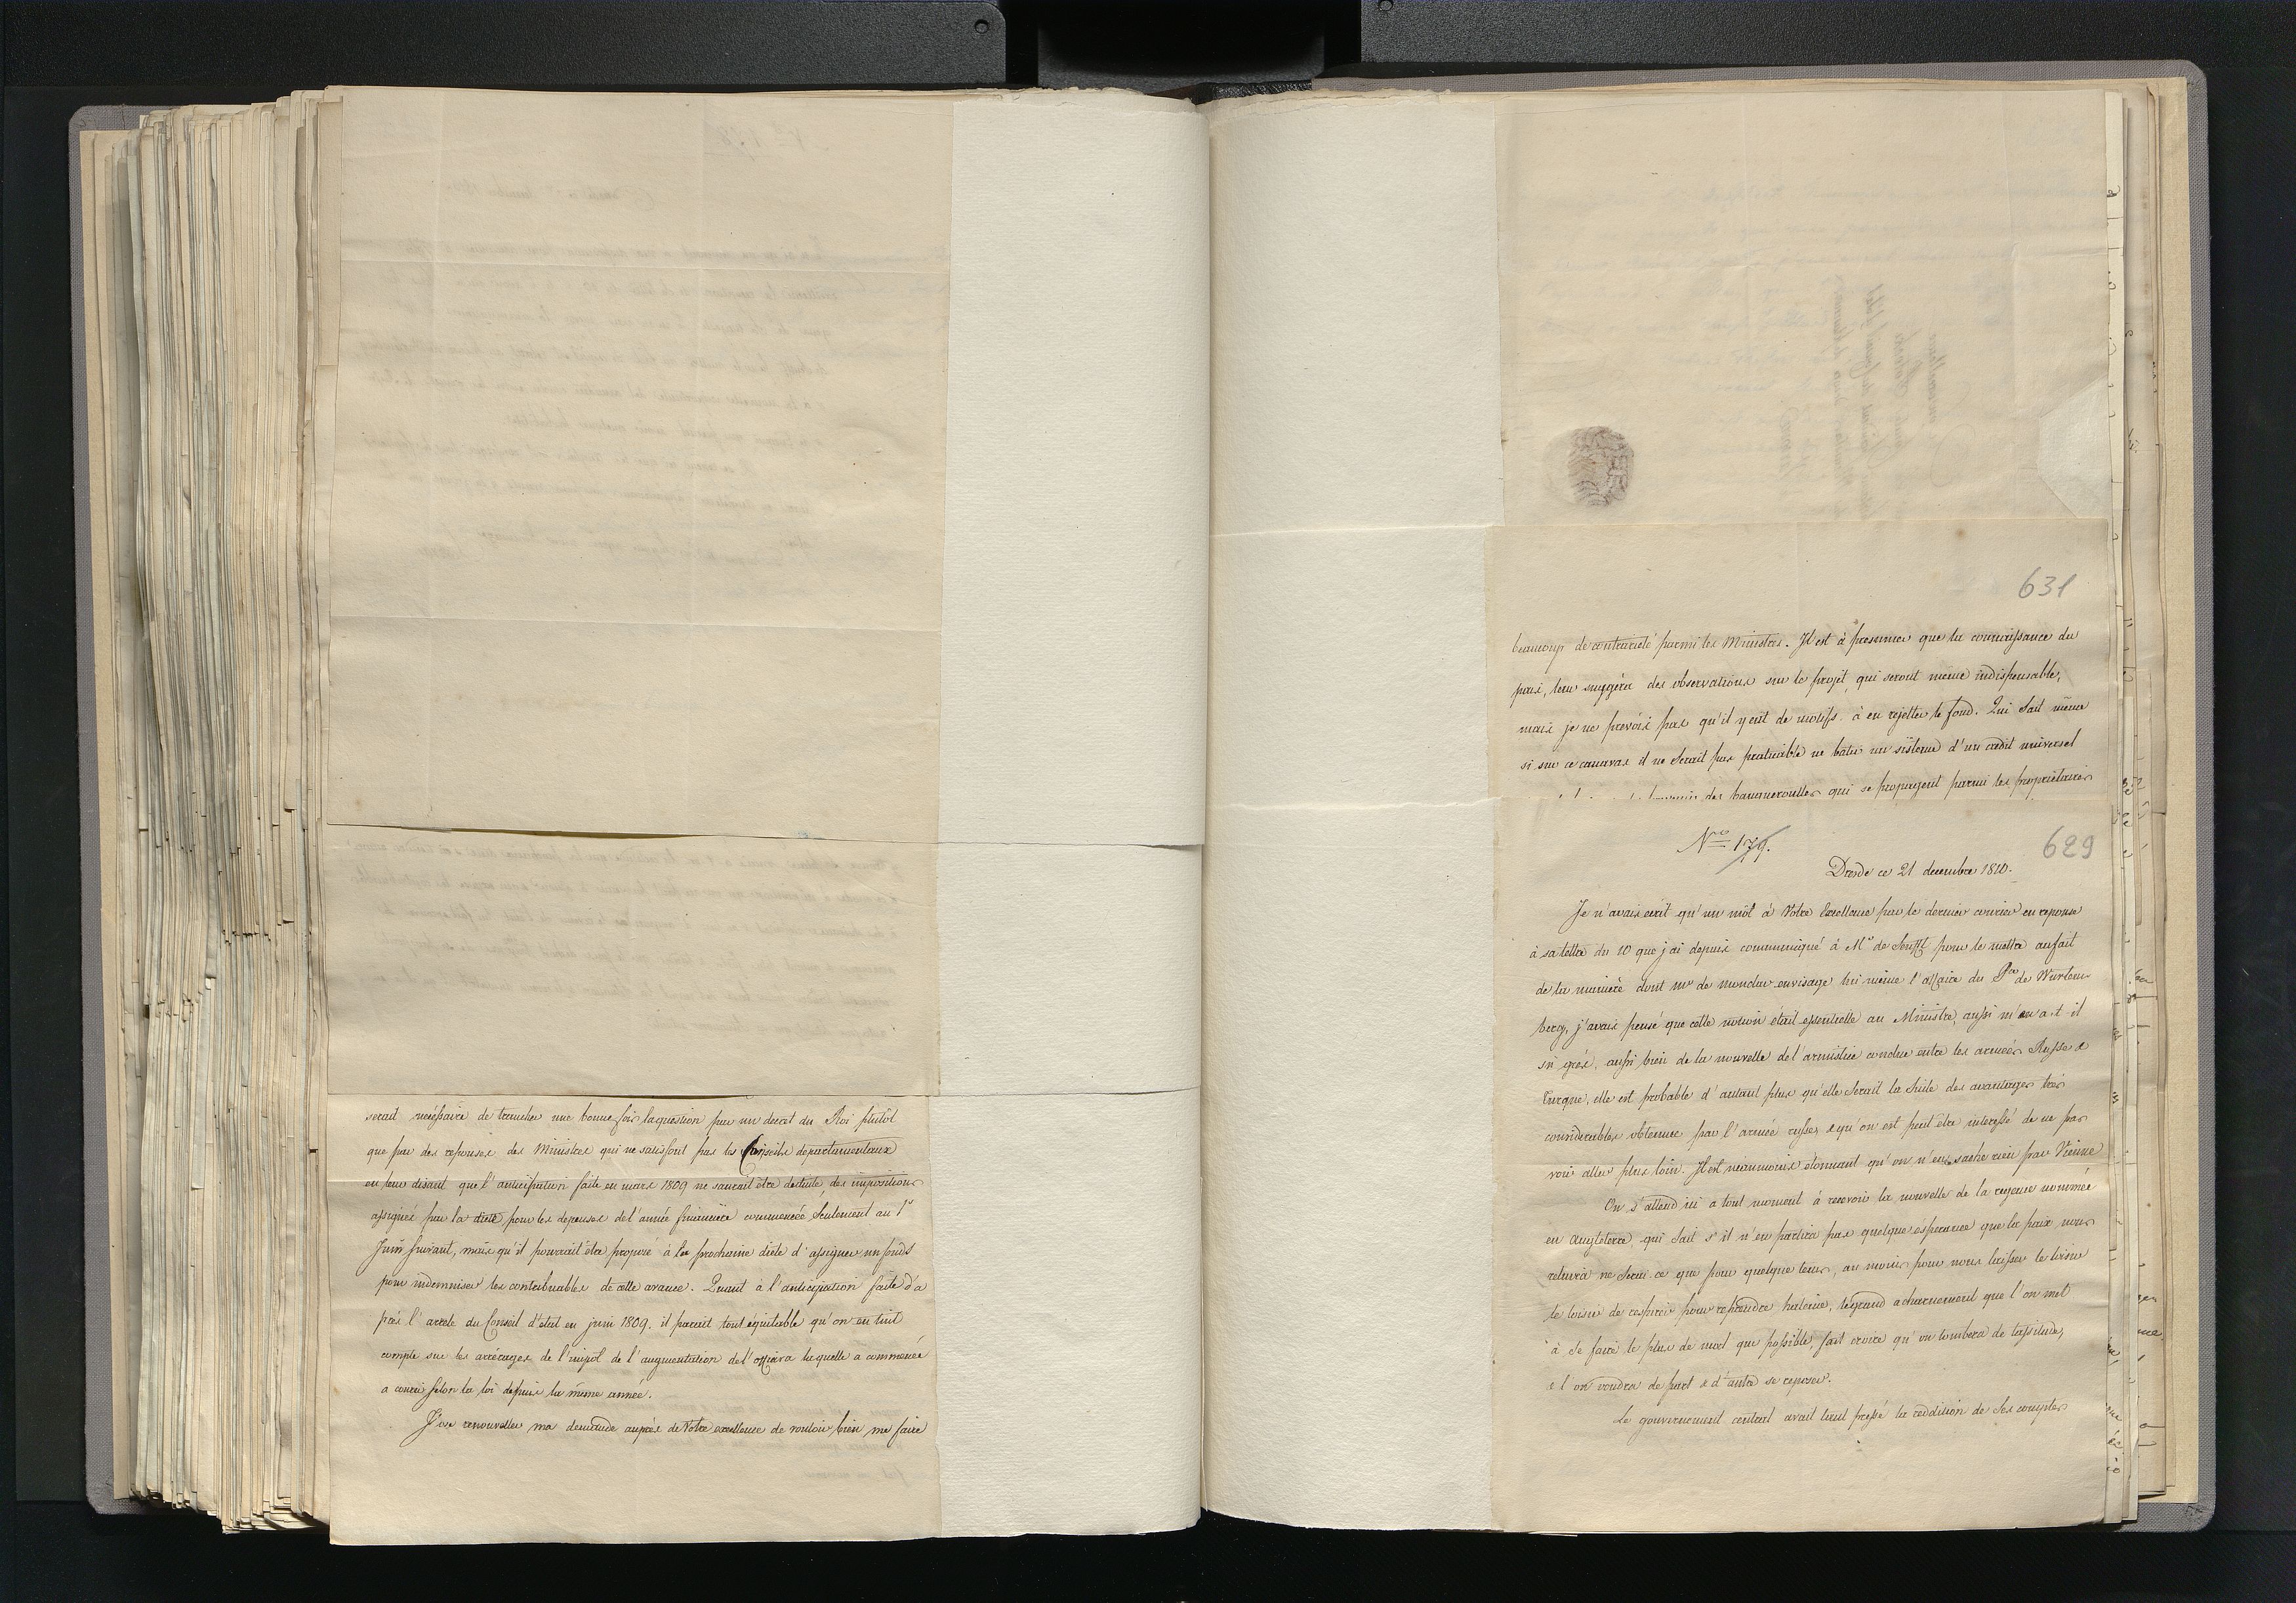 serait nécessaire de trancher une bonne fois la question par un decret du Roi plutôt
que par des reponses des Ministres qui ne satisfont pas les Conseils departamentaux
en leur disant que l'anticipation faite en mars 1809 ne saurait être deduite des impositions
assignés par la diete pour les depenses de l'année financière commencée seulement au 1r
Juin suivant, mais qu'il pourrait être proposé à la prochaine diete d'assigner un fonds
pour indemniser les contribuables de cette avance. Quant à l'anticipation faite d'a
près l'arrete du Conseil d'etat en juin 1809. il parait tout équitable qu'on en tint
compte sur les arrérages de l'impôt de l'augmentation de l'offiara laquelle a commencée
a courir selon la loi depuis la même année.
J'ose renouveller ma demande auprès de Votre excellence de vouloir bien me faire
631
beaucoup de contrarieté parmi les Ministres. Il est à presumer que la connaissance du
pais, leur suggéra des observations sur le projet, qui seront même indispensable,
mais je ne prevois pas qu'il y eut de motifs à en rejetter le fond. Qui sait même
si sur ce canavas il ne serait pas praticable de bâtir un sistème d'un credit universel
des banqueroutes qui se propagent parmi les proprietaires
Nro 179.
629
Dresde ce 21 decembre 1810.
Je n'avais ecrit qu'un môt à Votre Excellence par le dernier courier en reponse
à sa lettre du 10 que j'ai depuis communiqué à Mr de Senfft pour le mettre au fait
de la manière dont mr de montbu envisage lui même l'affaire du Pce de Wurtem
berg, j'avais pensé que cette notion était essentielle au Ministre, aussi m'en a-t-il
su grés, aussi bien de la nouvelle de l'armistice conclue entre les armées Russe &
Turque, elle est probable d'autant plus qu'elle serait la suite des avantages très
considerables obtenus par l'armée russe, & qu'on est peut être interessé de ne pas
voir aller plus loin. Il est neanmoins étonnant qu'on n'en sache rien par Vienne
On s'attend ici a tout moment à recevoir la nouvelle de la regence nommée
en Angleterre, qui sait s'il n'en partira pas quelque esperance que la paix nous
reluira ne serai-ce que pour quelque tems, au moins pour nous laisser le loisir
le loisir de respirer pour reprendre haleine, le grand acharnement que l'on met
à se faire le plus de mal que possible, fait croire qu'on tombera de lassitude,
et l'on voudra de part & d'autre se reposer.
Le gouvernement central avait tant pressé la reddition de ses comptes